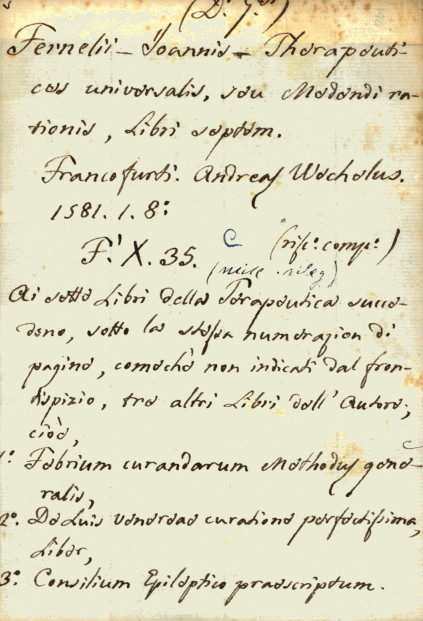 (D. 7.)
Fernelii - Joannis - Therapeuti-
ces universalis, seu Medendi ra-
tionis, Libri septem.
Francofurti. Andreas Wechelus.
1581. 1. 8:
F. X. 35. C (rife. comp.)
(misc. rileg)
Ai sette Libri della Terapeutica succe-
deno, sotto la stessa numerazion di
pagine, comechè non indicati dal fron-
tispizio, tre altri Libri dell' Autore;
cioè,
1º. Febrium curandarum Methodus gene-
ralis,
2º. De Luis venereae curatione perfectissima,
Liber,
3º. Consilium Epileptico praescriptum.